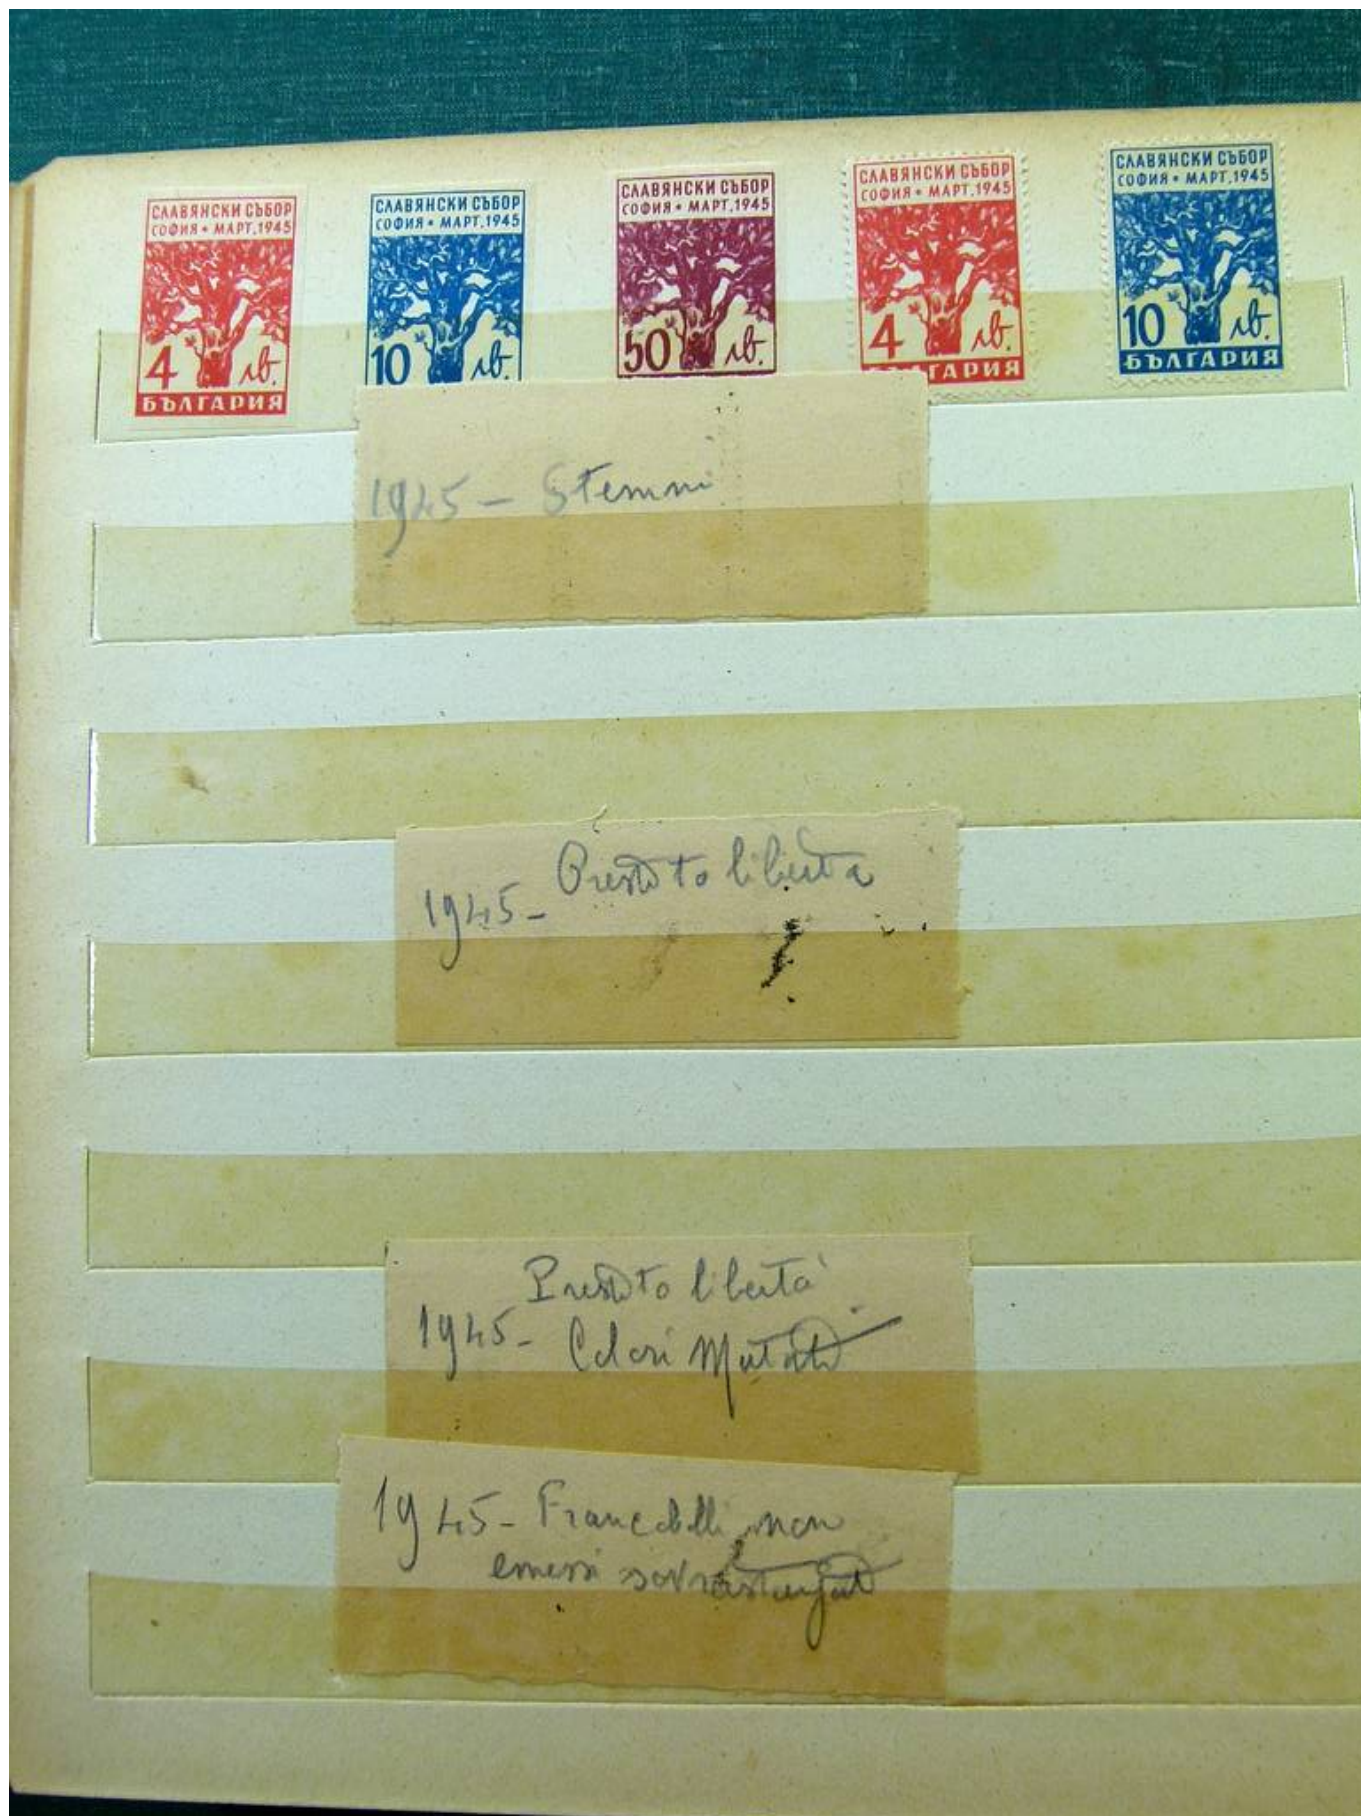 СЛАВЯНСКИ СЪБОР
СОФИЯ • МАРТ.1945
4 лв.
БЪЛГАРИЯ
СЛАВЯНСКИ СЪБОР
СОФИЯ • МАРТ.1945
10 лв.
СЛАВЯНСКИ СЪБОР
СОФИЯ • МАРТ.1945
50 лв.
СЛАВЯНСКИ СЪБОР
СОФИЯ • МАРТ.1945
4 лв.
БЪЛГАРИЯ
СЛАВЯНСКИ СЪБОР
СОФИЯ • МАРТ.1945
10 лв.
БЪЛГАРИЯ
1945 - Stemmi
1945 - Prestito libertà
Prestito libertà
1945 - Colori Mutati
1945 - Francobolli non
emessi sovrastampati